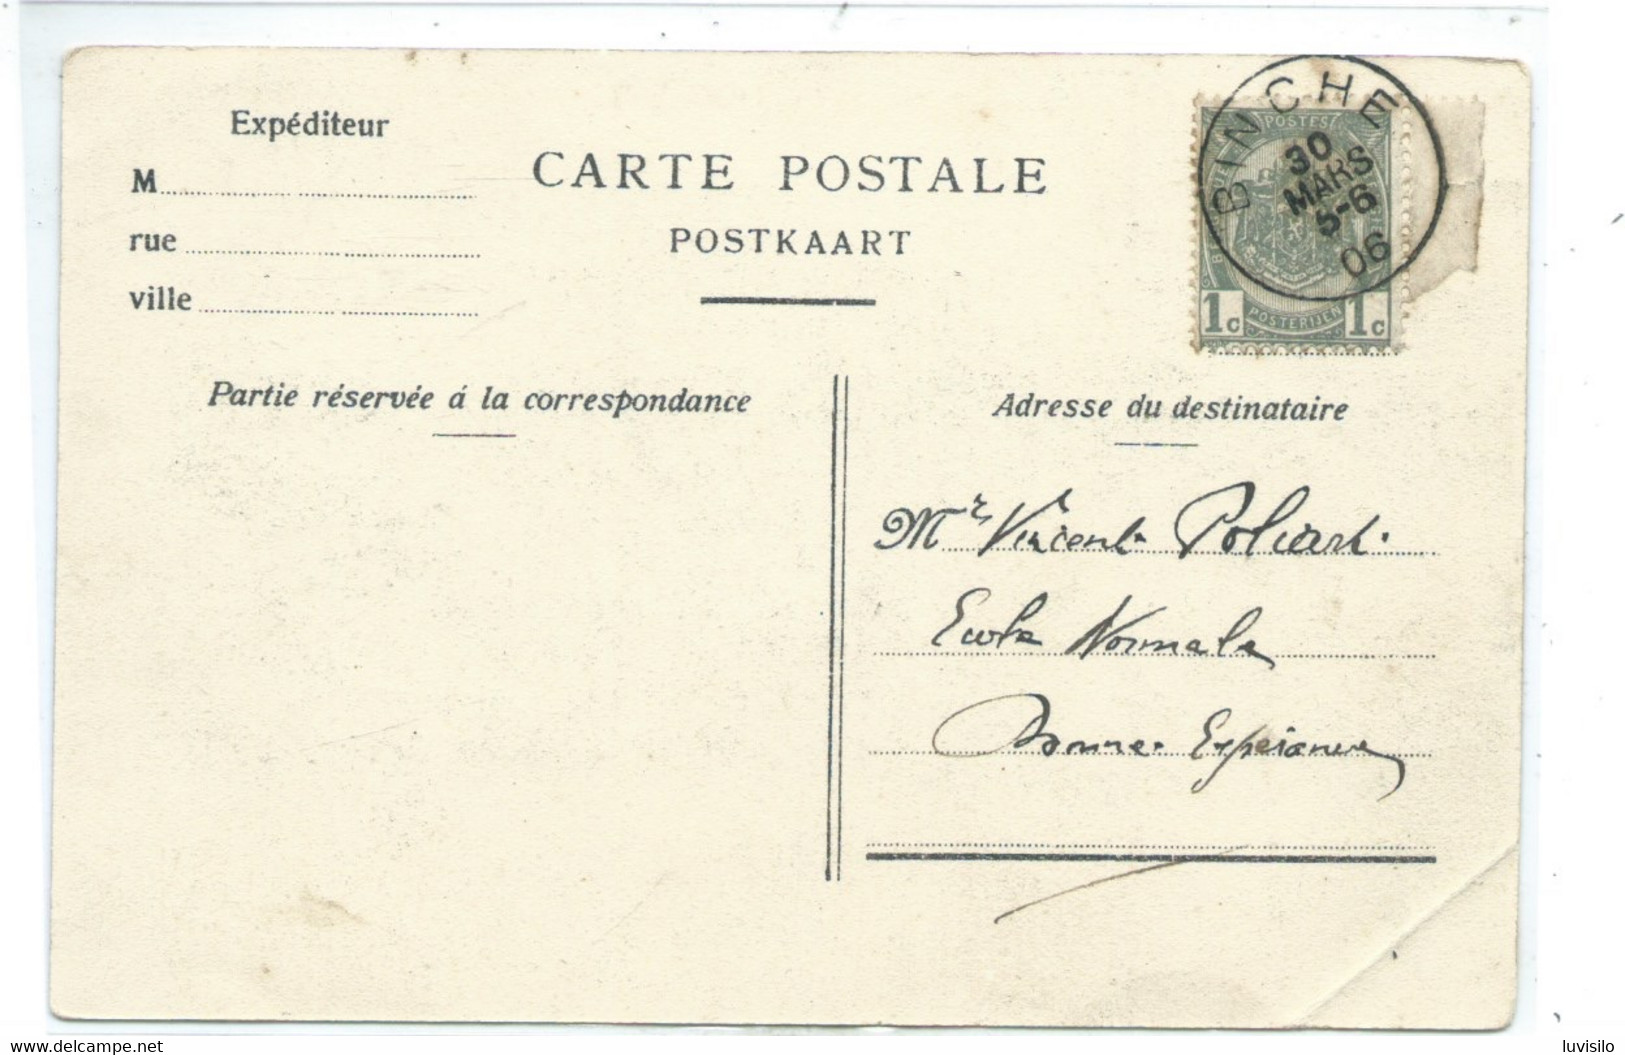 Expéditeur
M
rue
ville
CARTE POSTALE
POSTKAART
BINCHE
30
MARS
5-6
06
POSTES
1c POSTERIJEN 1c
Partie réservée á la correspondance
Adresse du destinataire
Mr Vincent Poliart.
Ecole Normale
Bonne Espérance
www.delcampe.net
luvisilo